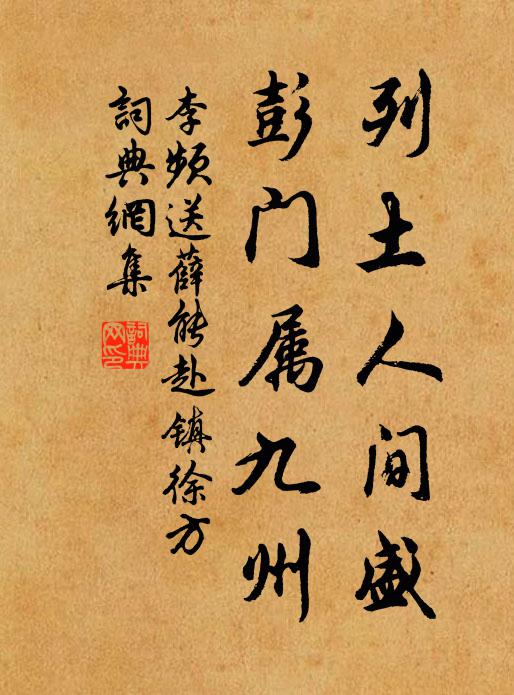 列土人间盛
彭门属九州
李频送薛能赴镇徐方
詞典網集
詞典网印